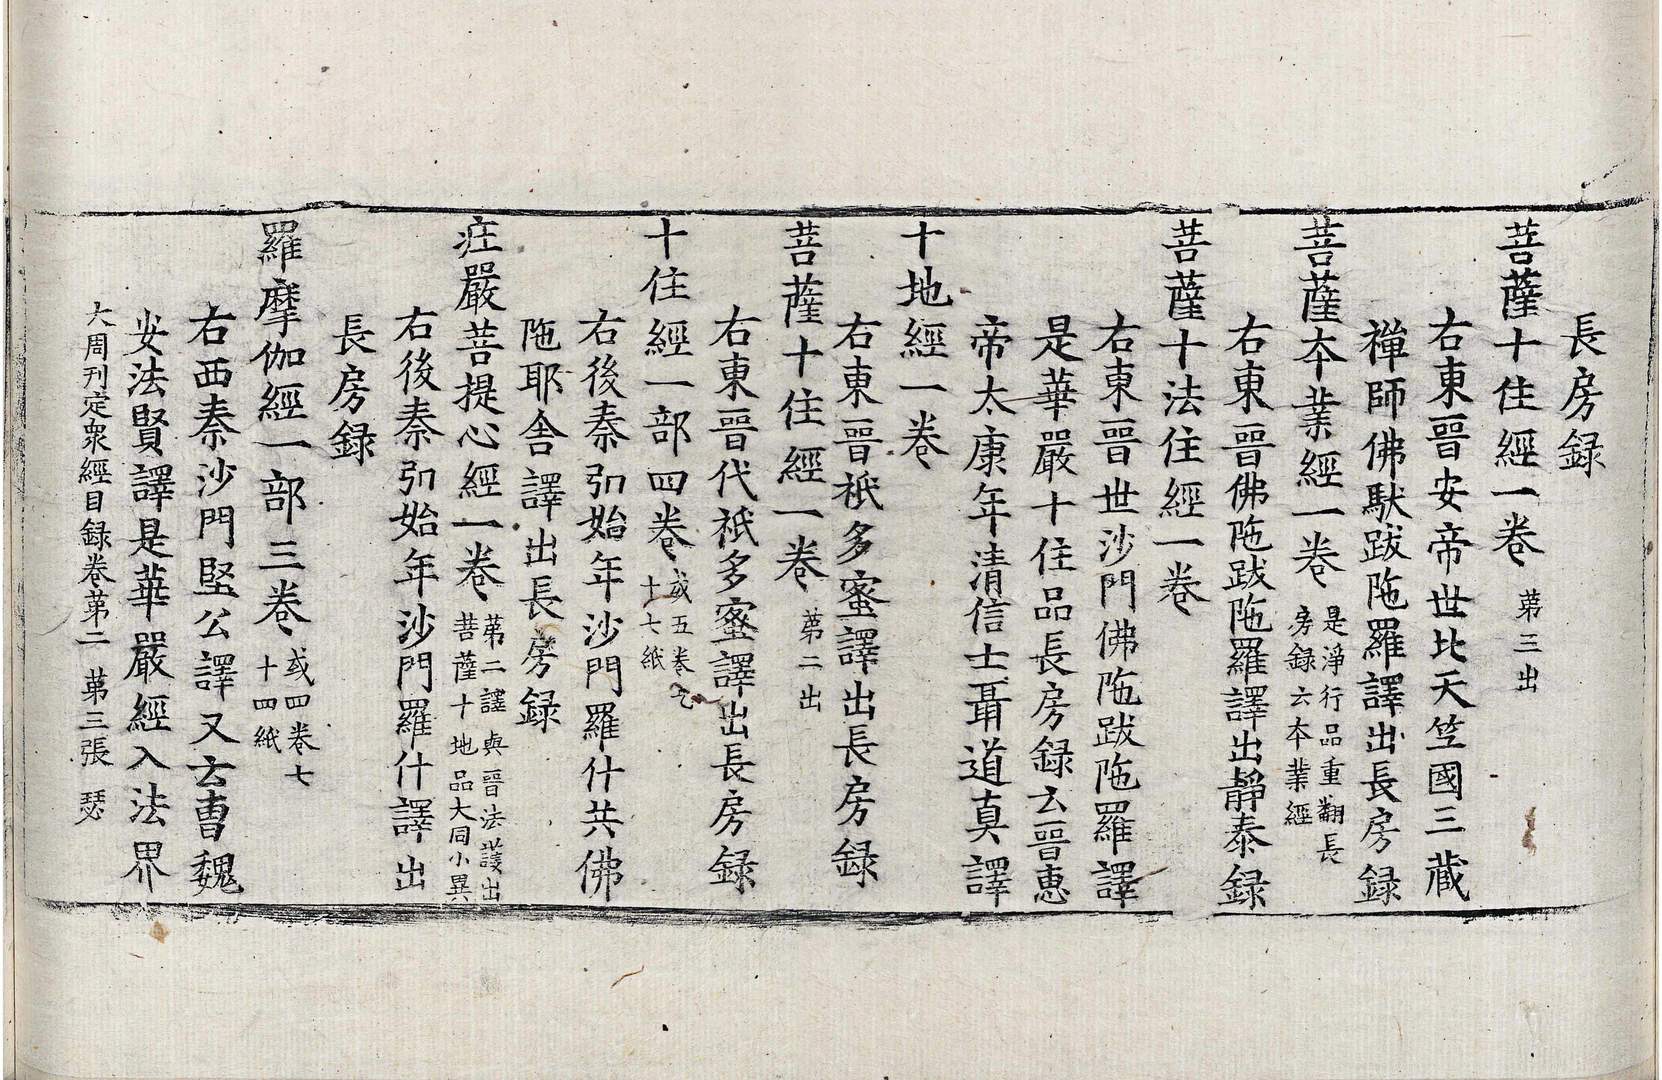 長房録
菩薩十住經一卷 第三出
右東晉安帝世比天竺國三藏
禪師佛馱跋陁羅譯出長房録
菩薩本業經一卷 是淨行品重翻長
房録云本業經
右東晉佛陁跋陁羅譯出靜泰録
菩薩十法住經一卷
右東晉世沙門佛陁跋陁羅譯
是華嚴十住品長房録云晉惠
帝太康年清信士聶道真譯
十地經一卷
右東晉祇多蜜譯出長房録
菩薩十住經一卷 第二出
右東晉代祇多蜜譯出長房録
十住經一部四卷 或五卷七
十七紙
右後秦弘始年沙門羅什共佛
陁耶舎譯出長房録
疘嚴菩提心經一卷 第二譯與晉法護出
菩薩十地品大同小異
右後秦弘始年沙門羅什譯出
長房録
羅摩伽經一部三卷 或四卷七
十四紙
右西秦沙門堅公譯又云曹魏
安法賢譯是華嚴經入法界
大周刊定衆經目録卷第二 第三張 瑟